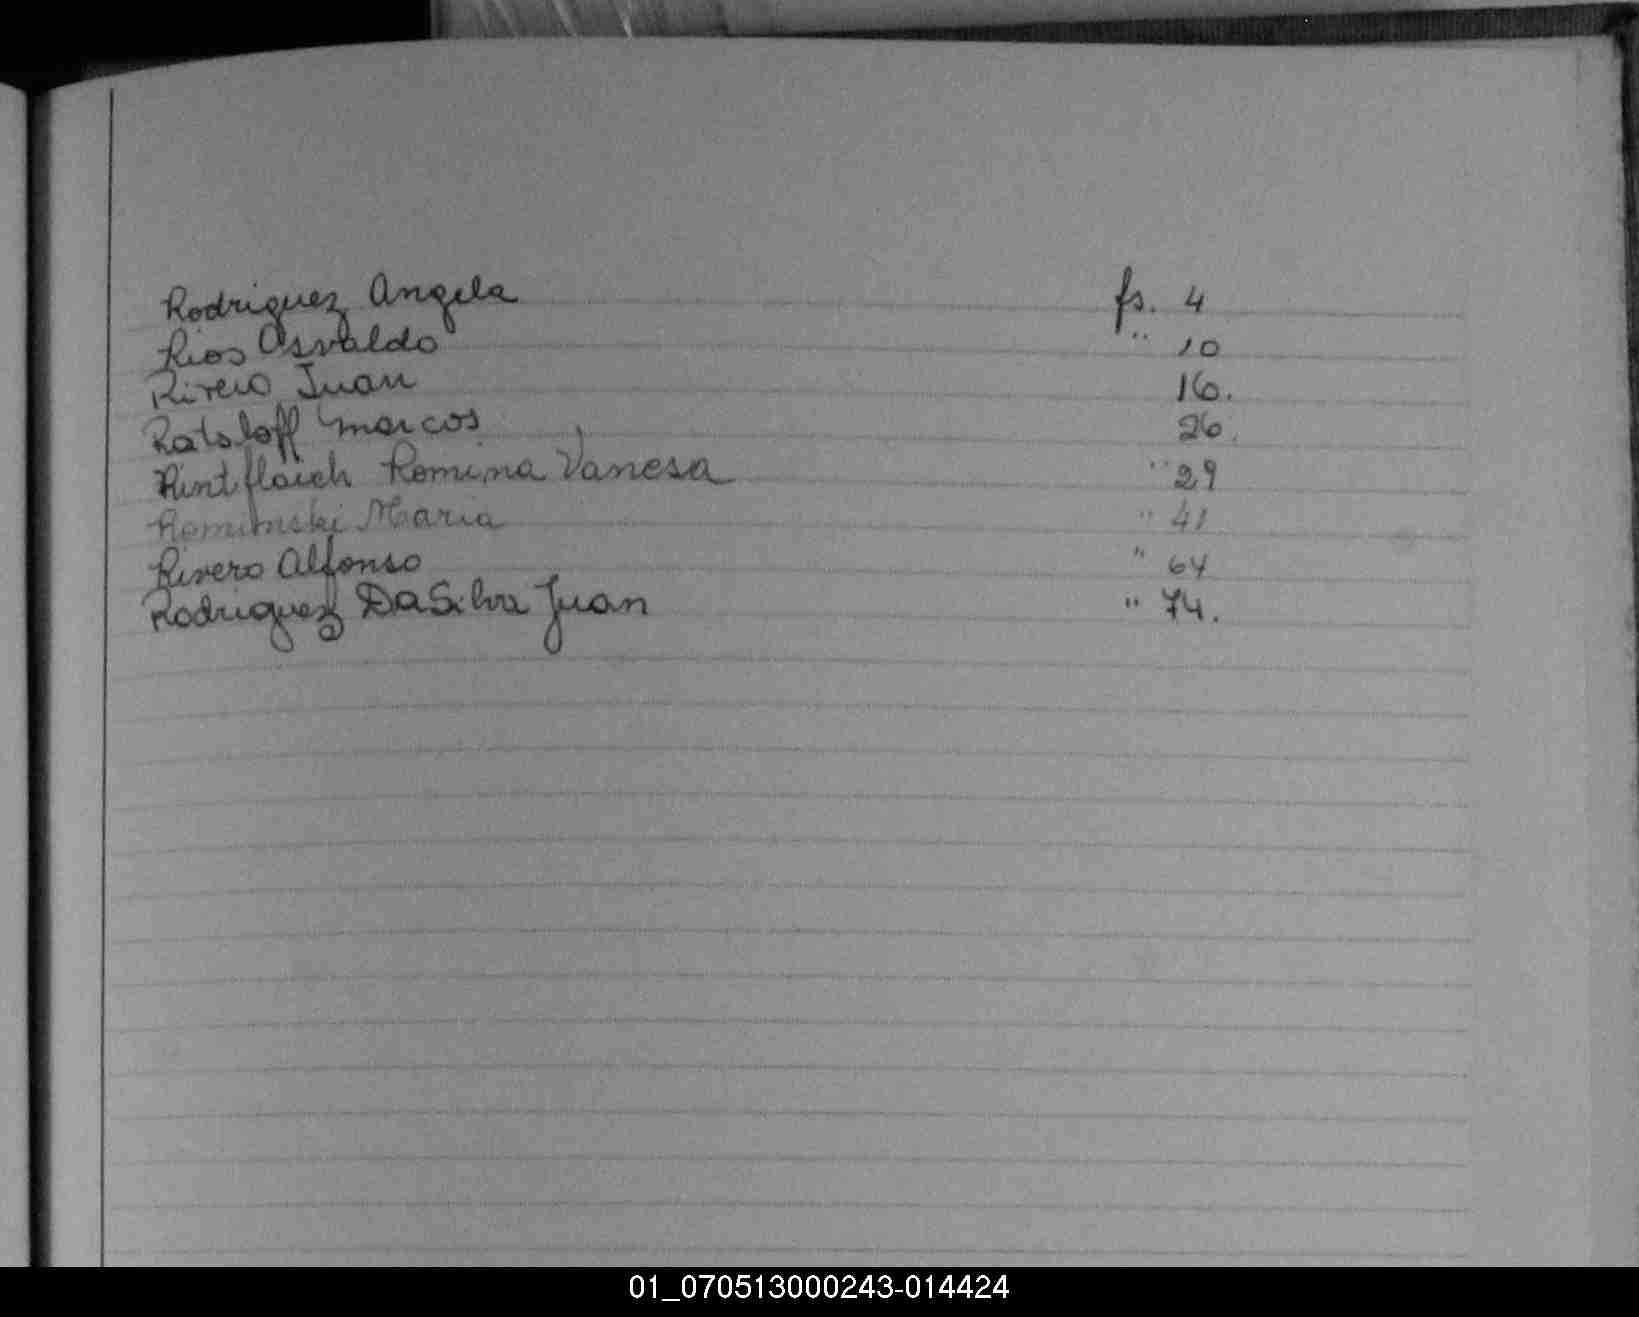 Rodriguez Angela fs. 4
Rios Osvaldo " 10
Rivero Juan 16.
Ratsloff Marcos 26.
Rintflaich Romina Vanesa " 29
Romimski Maria " 41
Rivero Alfonso " 64
Rodriguez DaSilva Juan " 74.
01_070513000243-014424